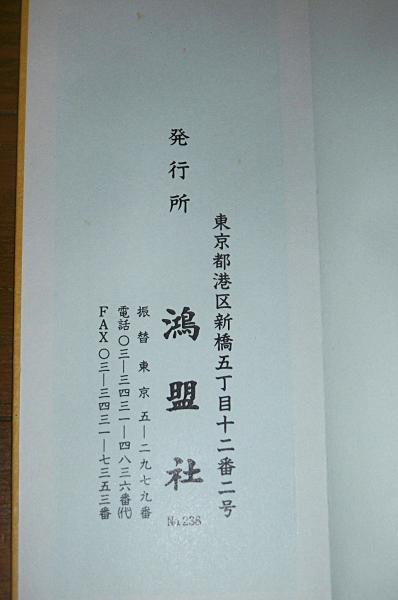 東京都港区新橋五丁目十二番二号
発行所
鴻盟社
No.238
振替東京五―二九七九番
電話〇三―三四三一―四八三六番(代)
FAX〇三―三四三一―七三五三番